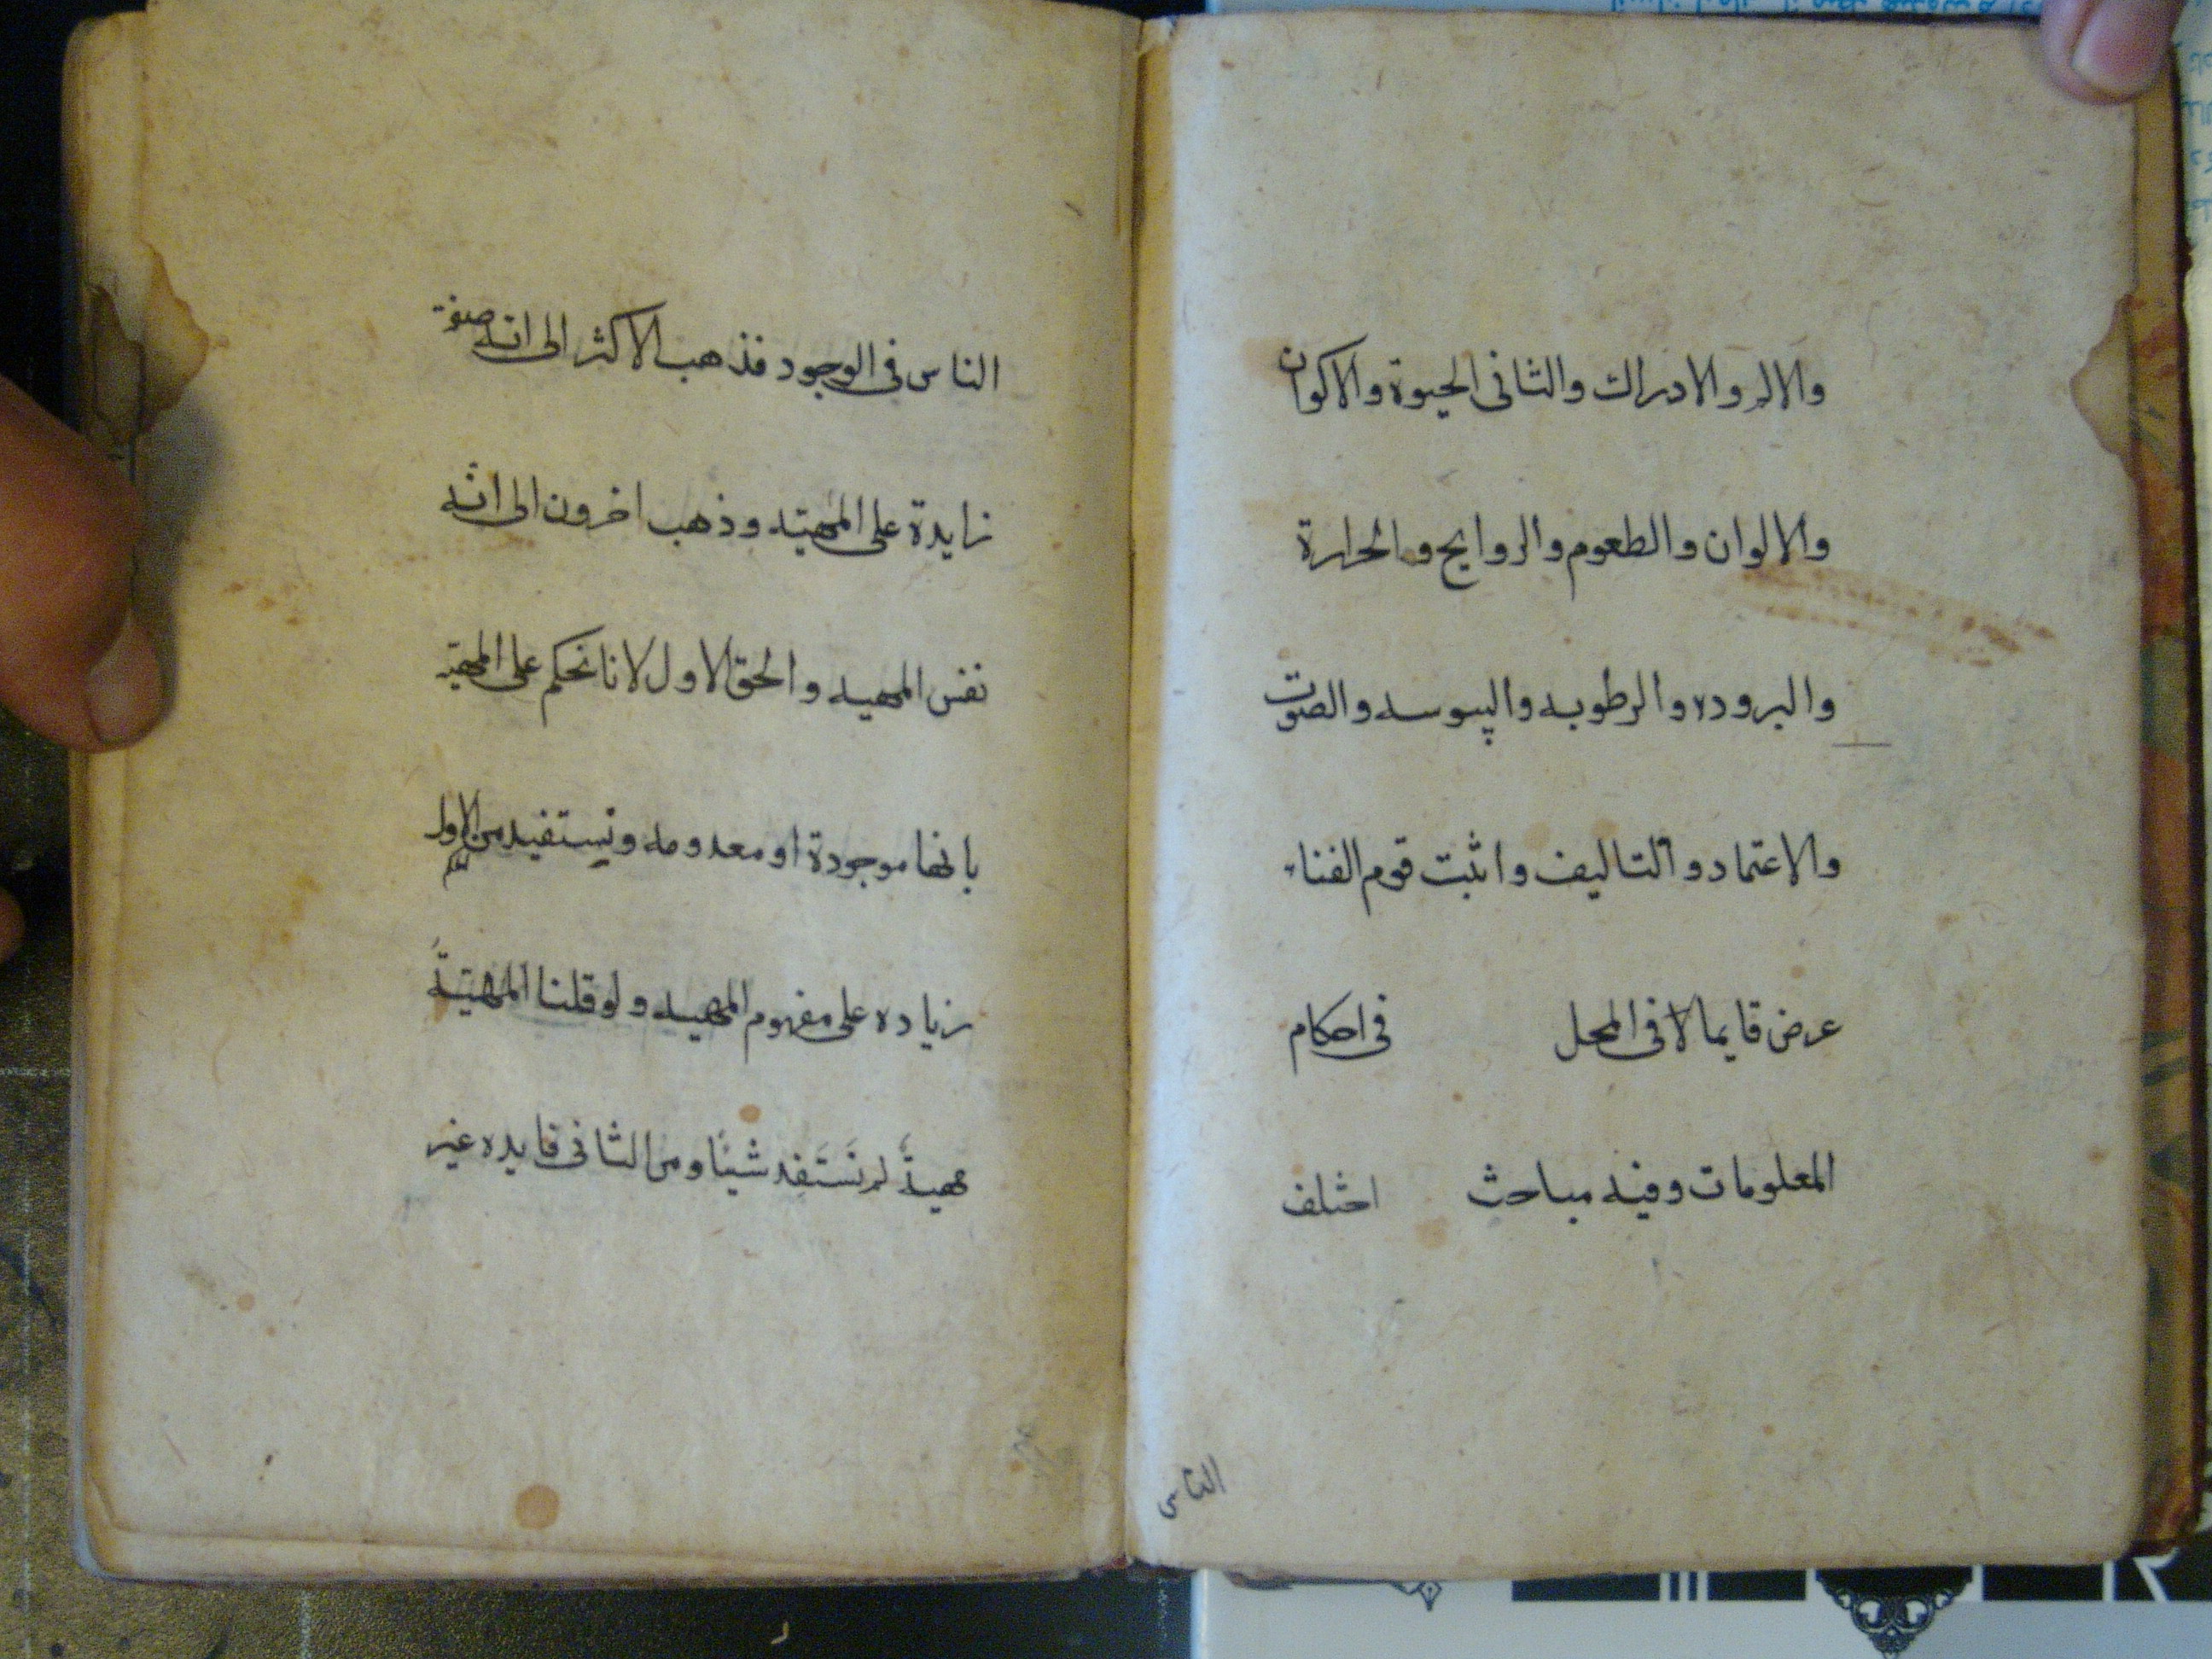 والالم والادراك والثانى الحيوة والاكوان
والالوان والطعوم والروايح والحرارة
والبروده والرطوبه واليبوسه والصوت
والاعتماد والتاليف واثبت قوم الفناء
عرض قايما لا فى المحل فى احكام
المعلومات وفيه مباحث اختلف
الناس
الناس فى الوجود فذهب الاكثر الى انه صفة
زايدة على المهيّه وذهب اخرون الى انّه
نفس المهيه والحق الاول لانا نحكم على المهيّه
بانها موجودة او معدومه ونستفيد من الاول
زياده على مفهوم المهيه ولو قلنا المهيّةُ
مهيةٌ لم نَستَفِد شيئًا ومن الثانى فايده غير